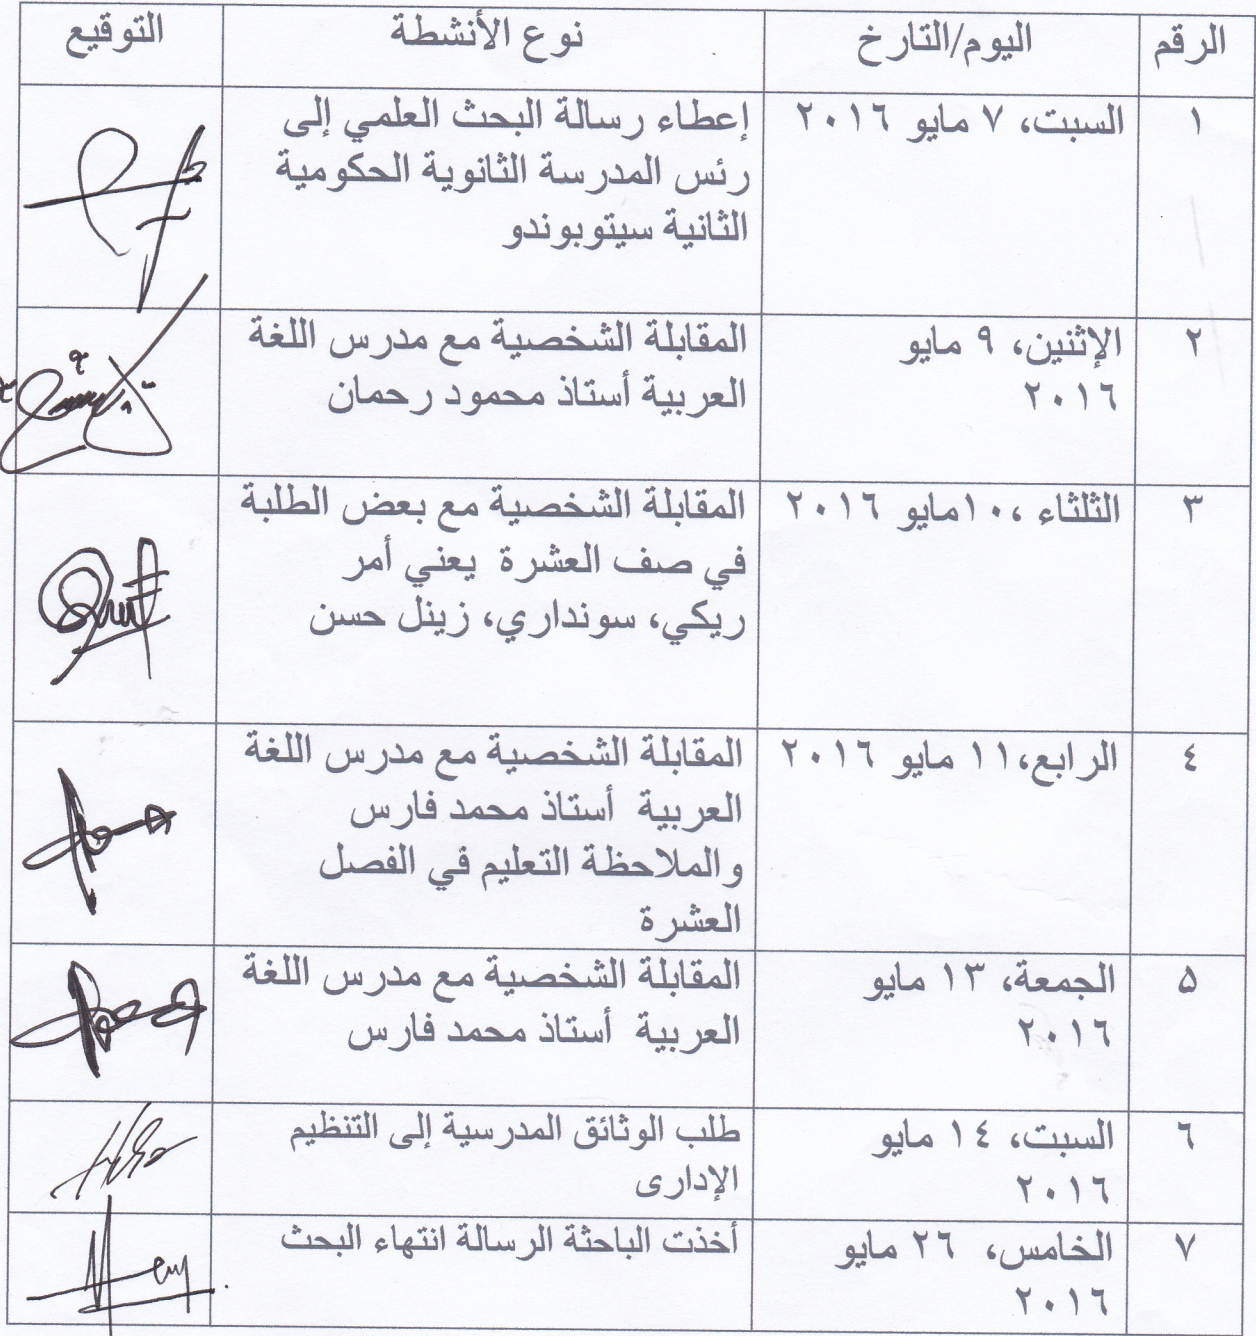 الرقم اليوم/التارخ نوع الأنشطة التوقيع
١ السبت، ٧ مايو ٢٠١٦ إعطاء رسالة البحث العلمي إلى
رئس المدرسة الثانوية الحكومية
الثانية سيتوبوندو
٢ الإثنين، ٩ مايو المقابلة الشخصية مع مدرس اللغة
٢٠١٦ العربية أستاذ محمود رحمان
٣ الثلثاء ،١٠مايو ٢٠١٦ المقابلة الشخصية مع بعض الطلبة
في صف العشرة يعني أمر
ريكي، سونداري، زينل حسن
٤ الرابع،١١ مايو ٢٠١٦ المقابلة الشخصية مع مدرس اللغة
العربية أستاذ محمد فارس
والملاحظة التعليم في الفصل
العشرة
٥ الجمعة، ١٣ مايو المقابلة الشخصية مع مدرس اللغة
٢٠١٦ العربية أستاذ محمد فارس
٦ السبت، ١٤ مايو طلب الوثائق المدرسية إلى التنظيم
٢٠١٦ الإدارى
٧ الخامس، ٢٦ مايو أخذت الباحثة الرسالة انتهاء البحث
٢٠١٦